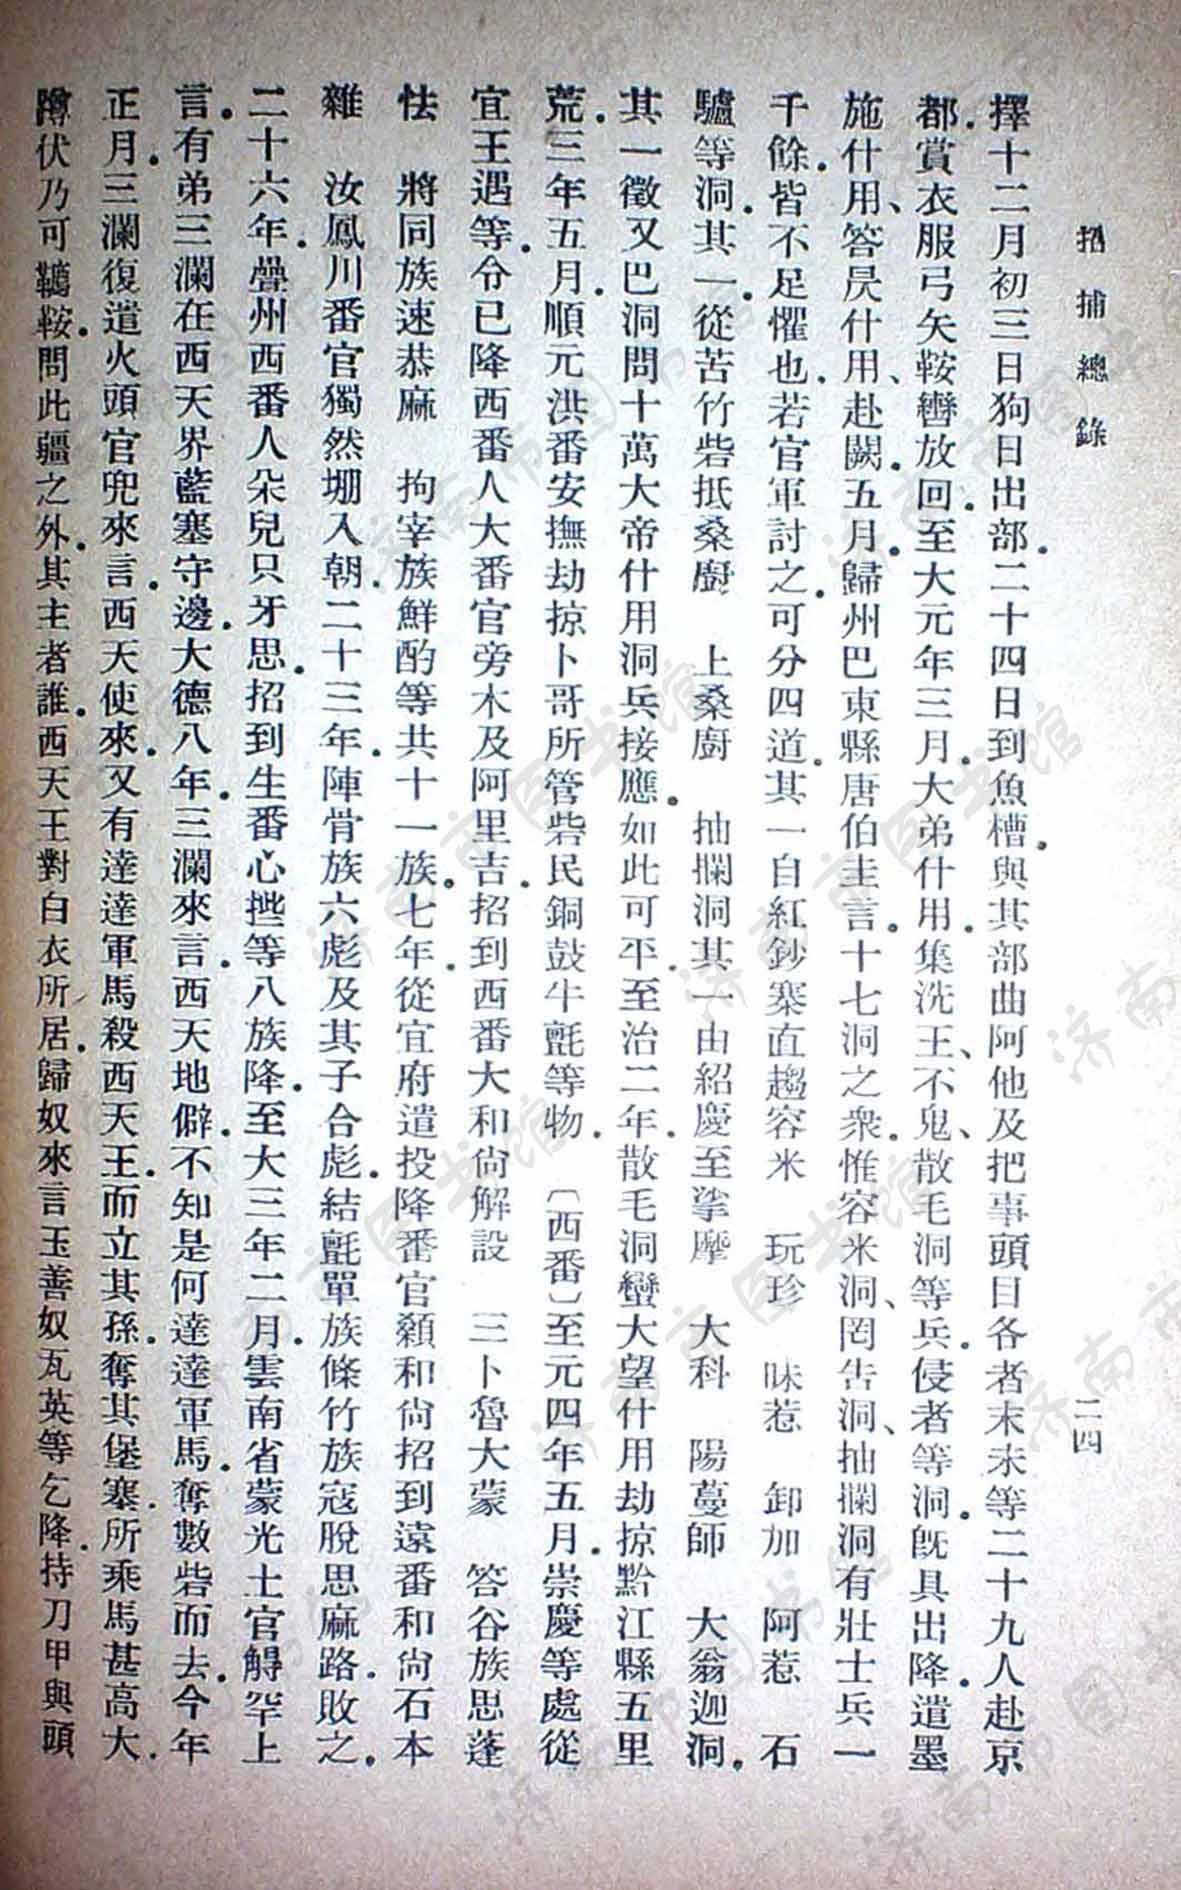 招捕總錄
二四
擇十二月初三日狗日出部。二十四日到魚槽。與其部曲阿他及把事頭目各者末未等二十九人赴京
都。賞衣服弓矢鞍轡放回。至大元年三月。大弟什用。集洗王、不鬼、散毛洞等兵。侵者等洞。旣具出降。遣墨
施什用、答昃什用、赴闕。五月。歸州巴東縣唐伯圭言。十七洞之衆。惟容米洞、罔告洞、抽攔洞有壯士兵一
千餘。皆不足懼也。若官軍討之。可分四道。其一自紅鈔寨直趨容米　玩珍　昧惹　卸加　阿惹　石
驢等洞。其一從苦竹砦抵桑廚　上桑廚　抽攔洞其一由紹慶至掌摩　大科　陽蔓師　大翁迦洞。
其一徵又巴洞問十萬大帝什用洞兵接應。如此可平。至治二年。散毛洞蠻大望什用劫掠黔江縣五里
荒。三年五月。順元洪番安撫劫掠卜哥所管砦民銅鼓牛氈等物。〔西番〕至元四年五月。崇慶等處從
宜王遇等。令已降西番人大番官旁木及阿里吉。招到西番大和尙解設　三卜魯大蒙　答谷族思蓬
怯　將同族速恭麻　拘宰族鮮酌等共十一族。七年。從宜府遣投降番官纇和尙招到遠番和尙石本
雜　汝鳳川番官獨然堋入朝。二十三年。陣骨族六彪及其子合彪。結氈單族條竹族寇脫思麻路。敗之。
二十六年。疊州西番人朵兒只牙思。招到生番心㧰等八族降。至大三年二月。雲南省蒙光土官䚟罕上
言。有弟三瀾在西天界藍塞守邊。大德八年。三瀾來言。西天地僻。不知是何達達軍馬。奪數砦而去。今年
正月。三瀾復遣火頭官兜來言。西天使來。又有達達軍馬殺西天王。而立其孫。奪其堡塞。所乘馬甚高大。
蹲伏乃可鞴鞍。問此疆之外。其主者誰。西天王對白衣所居。歸奴來言玉善奴瓦英等乞降。持刀甲與頭